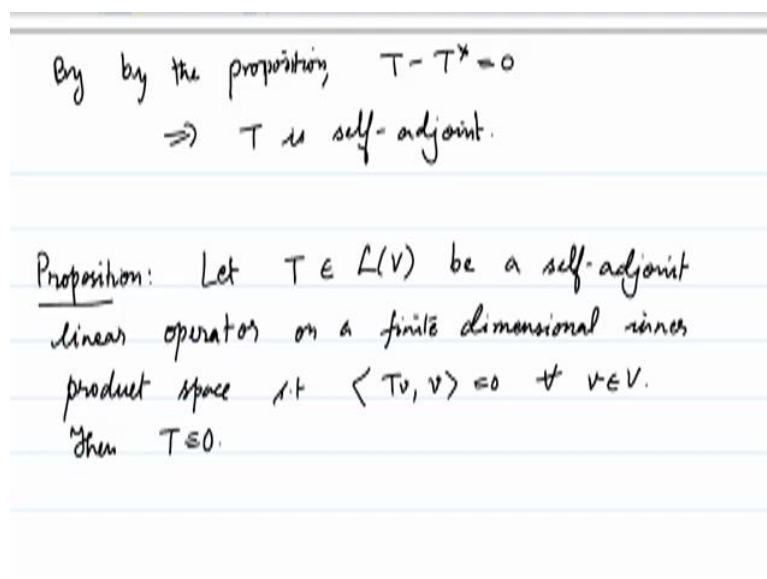 By by the proposition, T - T* = 0
⇒ T is self-adjoint.
Proposition: Let T ∈ L(V) be a self-adjoint
linear operator on a finite dimensional inner
product space s.t ⟨Tv, v⟩ = 0 ∀ v ∈ V.
Then T ≡ 0.